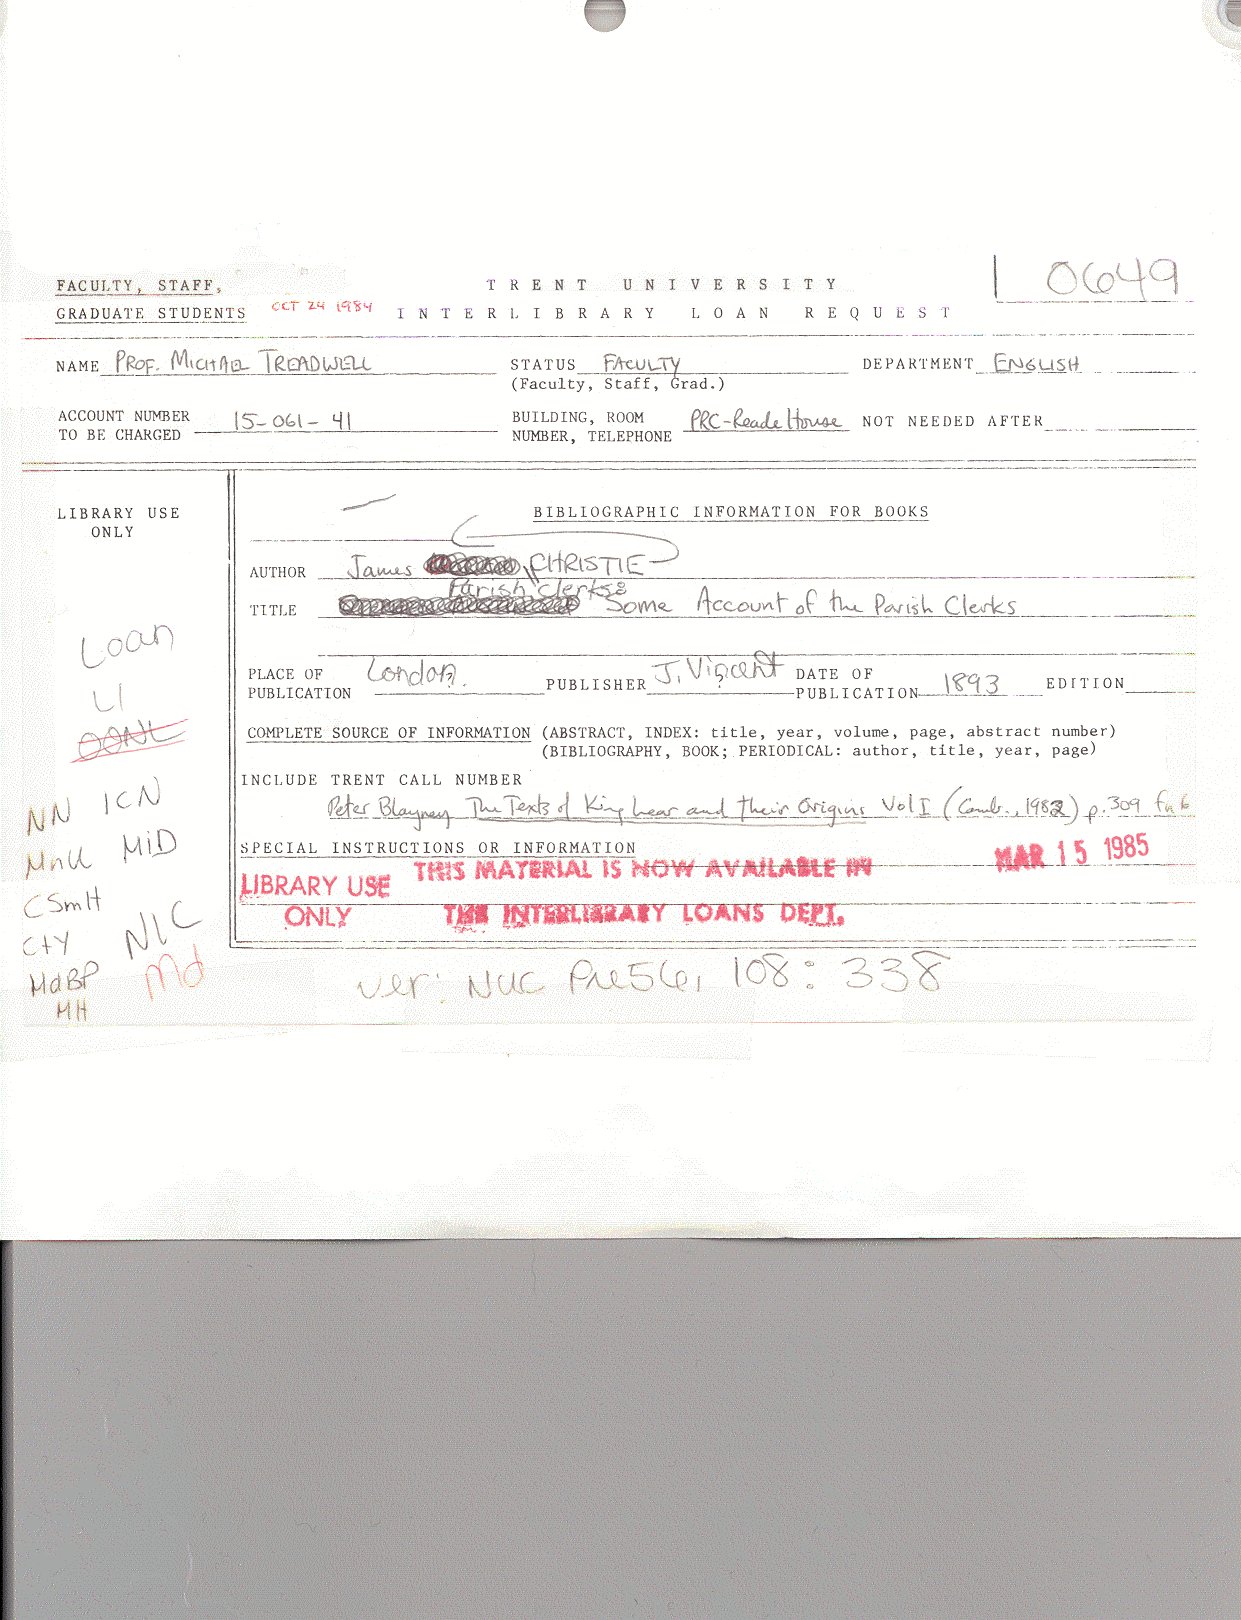 FACULTY, STAFF, TRENT UNIVERSITY L 0649
GRADUATE STUDENTS OCT 24 1984 INTERLIBRARY LOAN REQUEST
NAME PROF. MICHAEL TREADWELL STATUS FACULTY DEPARTMENT ENGLISH
(Faculty, Staff, Grad.)
ACCOUNT NUMBER 15-061-41 BUILDING, ROOM PRC-Reade House NOT NEEDED AFTER
TO BE CHARGED NUMBER, TELEPHONE
LIBRARY USE BIBLIOGRAPHIC INFORMATION FOR BOOKS
ONLY
AUTHOR James CHRISTIE
Parish Clerks
TITLE Some Account of the Parish Clerks
Loan
PLACE OF London. PUBLISHER J. Vincent DATE OF 1893 EDITION
PUBLICATION PUBLICATION
LI
OONL
COMPLETE SOURCE OF INFORMATION (ABSTRACT, INDEX: title, year, volume, page, abstract number)
(BIBLIOGRAPHY, BOOK; PERIODICAL: author, title, year, page)
INCLUDE TRENT CALL NUMBER
NN ICN
Peter Blayney The Texts of King Lear and their Origins Vol I (Camb., 1982) p.309 fn 6
MnU MiD
SPECIAL INSTRUCTIONS OR INFORMATION MAR 15 1985
LIBRARY USE THIS MATERIAL IS NOW AVAILABLE IN
ONLY THE INTERLIBRARY LOANS DEPT.
CSmH
CtY NIC
MdBP Md
MH
ver: NUC Pre56, 108: 338